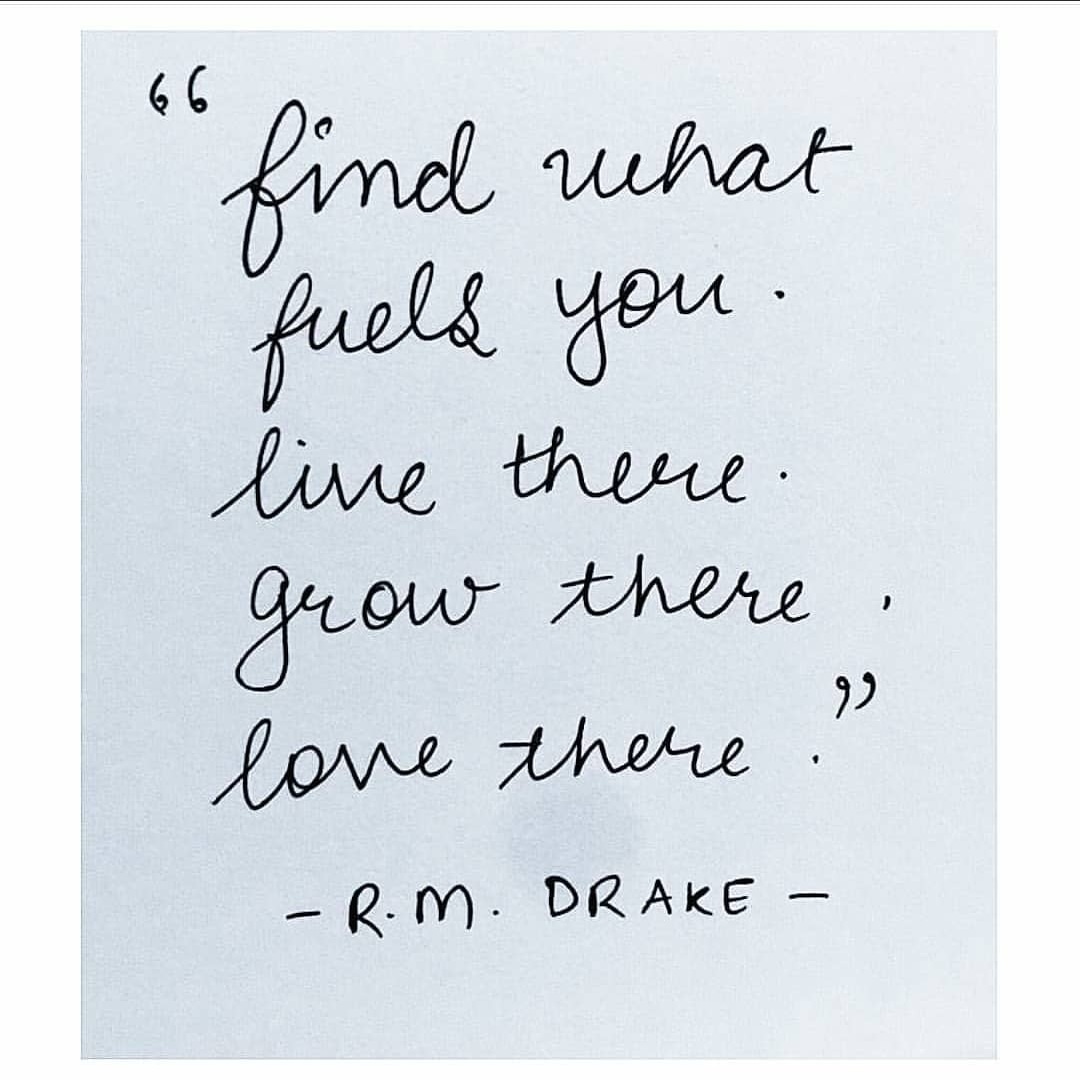 “find what
fuels you.
live there.
grow there,
love there.”
- R.M. DRAKE -